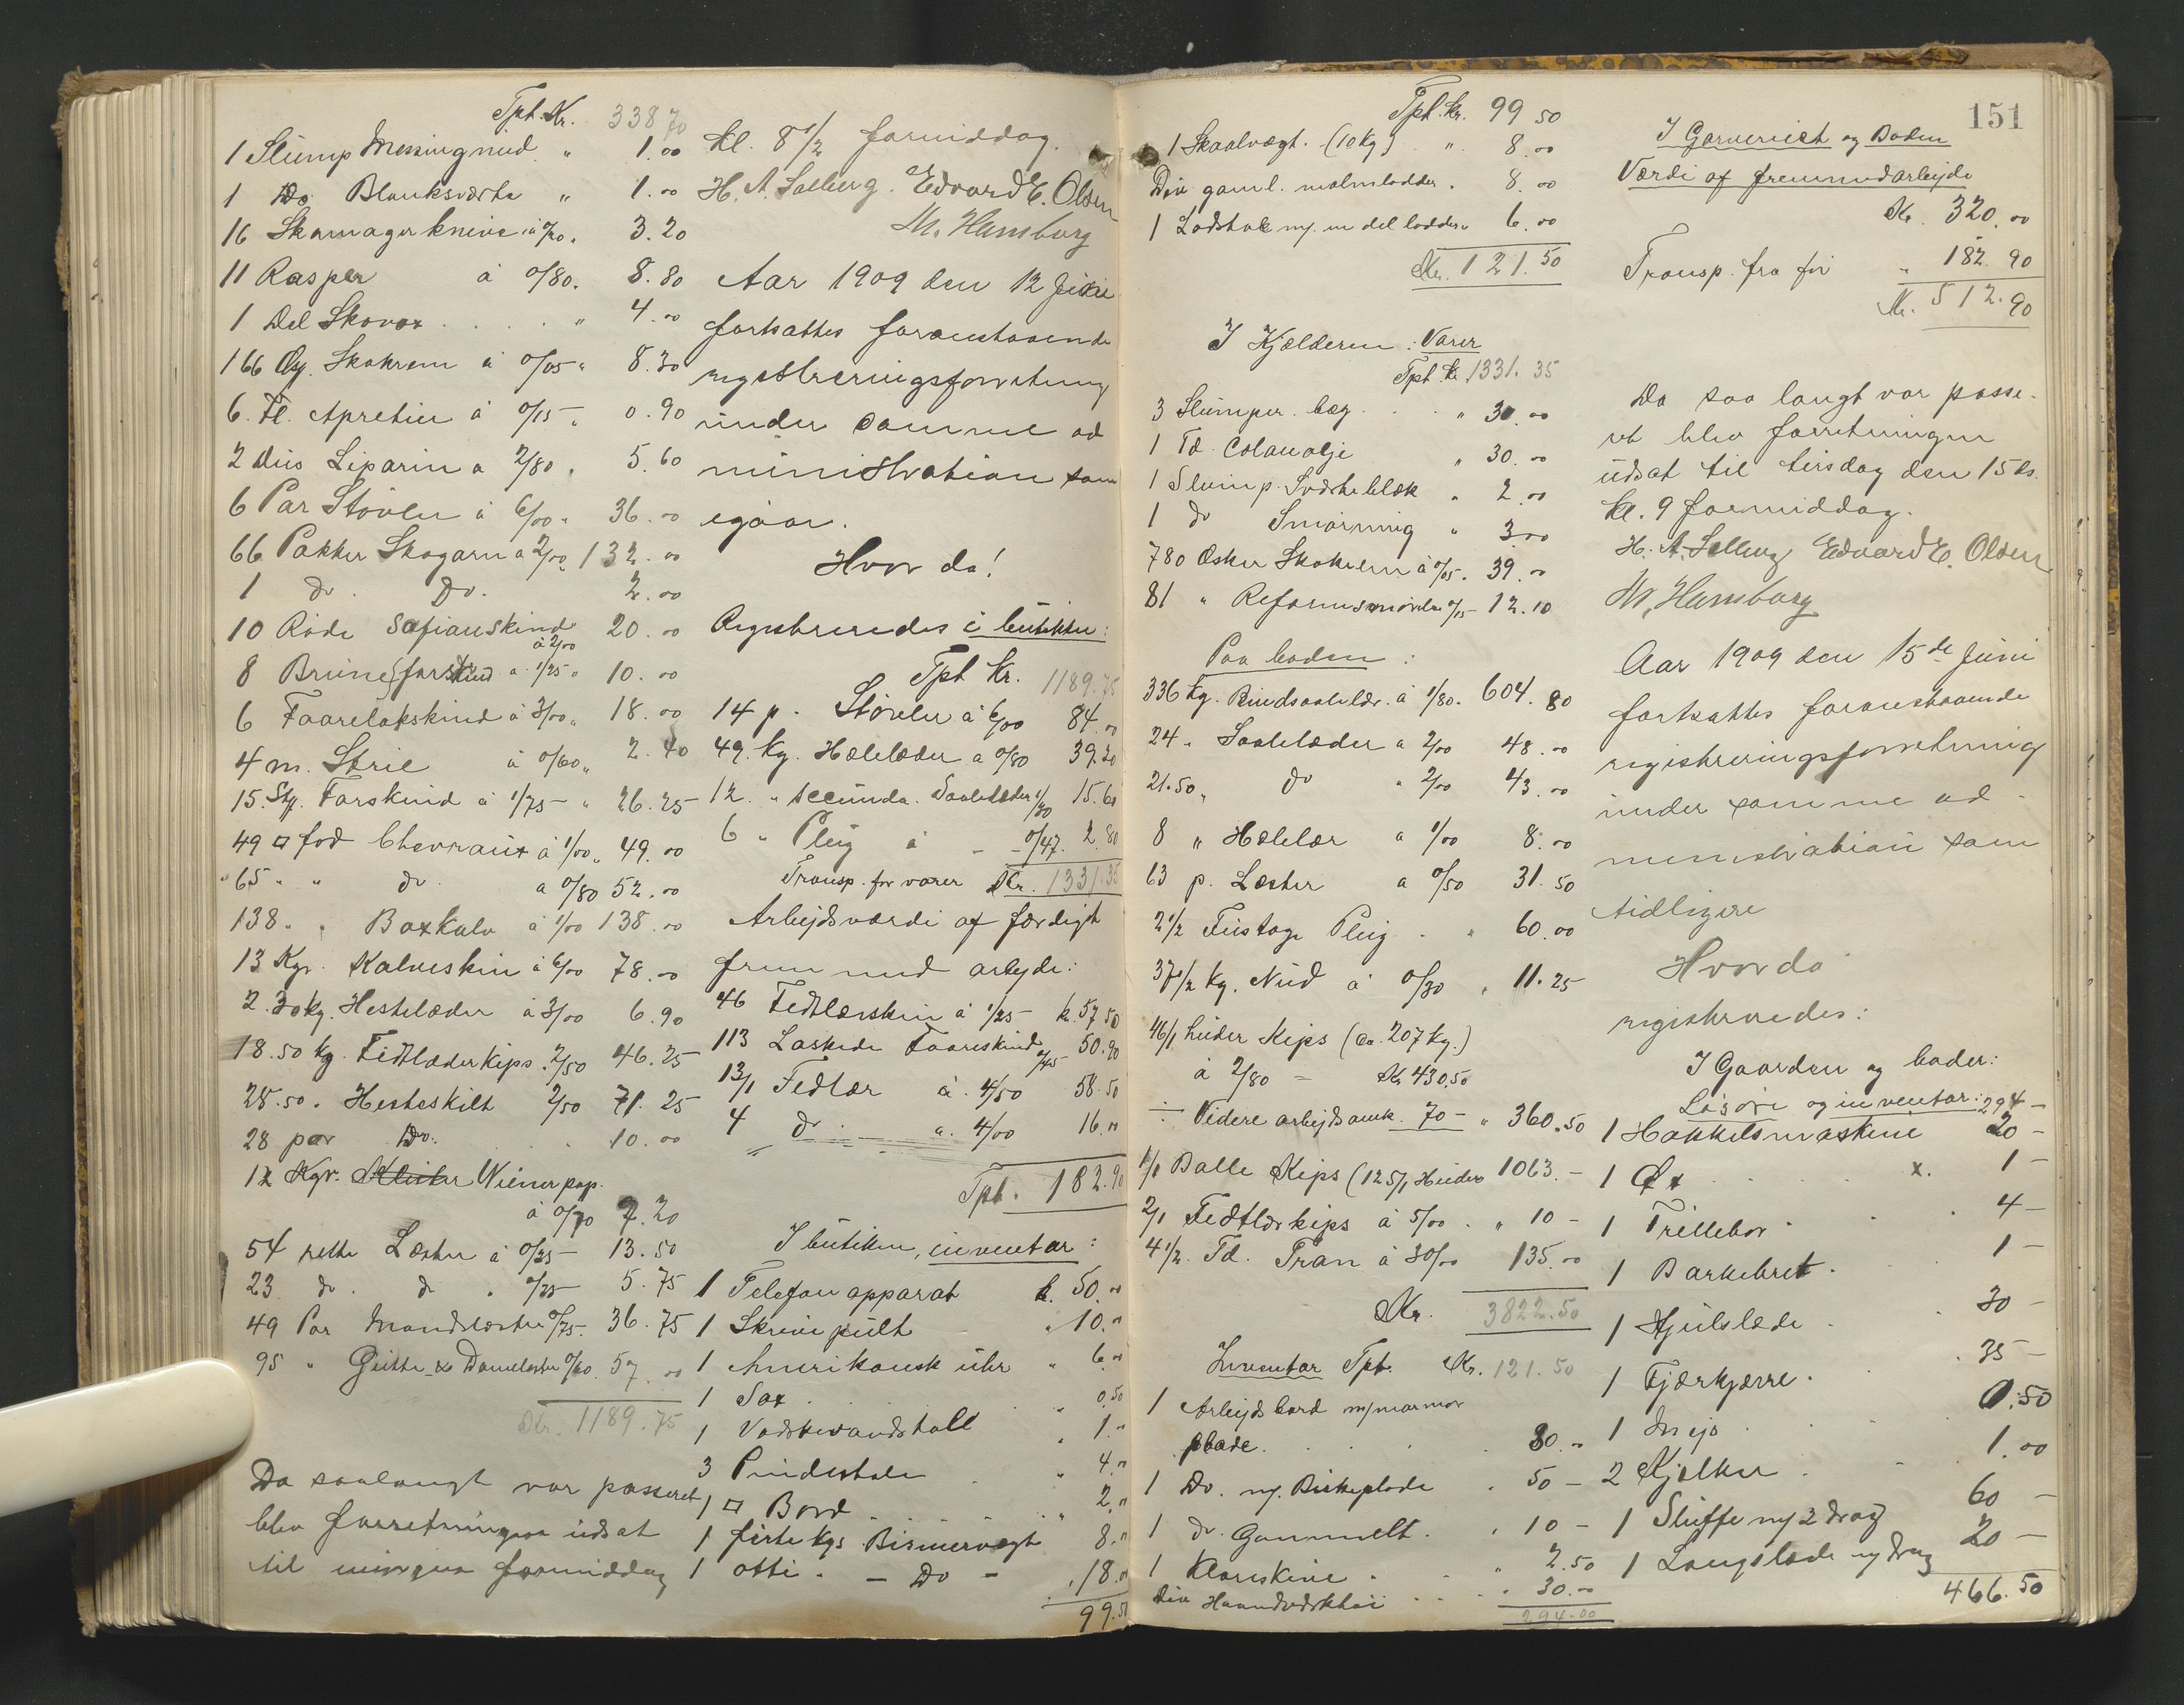 Tpt. Kr. 338 70
1 Slump Messingnud " 1.00
1 Do Blanksværte " 1.00
16 Skomagerknive à 0/20 " 3.20
11 Rasper à 0/80 " 8.80
1 Del Skovox . . . . " 4.00
166 Æsk. Skokrem à 0/05 " 8.30
6. Fl. Apretur à 0/15 " 0.90
2 dus Liparin a 2/80 " 5.60
6 Par Støvler à 6/00 " 36.00
66 Pakker Skogarn a 2/00 " 132.00
1 do. Do. 2.00
10 Røde Safianskind à 2/00 20.00
8 Brune faarskind a 1/25 " 10.00
6 Faarelakskind à 3/00 " 18.00
4 m. Strie à 0/60 " 2.40
15. Stk. Farskind à 1/75 - " 26.25
49 □ fod Chevraux à 1/00 " 49.00
65 " " do. a 0/80 52.00
138 " " Boxkalv à 1/00 138.00
13 Kgr. Kalveskin à 6/00 78.00
2.30 kg. Hestelæder à 3/00 6.90
18.50 kg. Fedtlæderkips. 2/50 46.25
28.50 " Hesteskilt 2/50 71.25
28 par Do. . . 10.00
12 Kgr. Wienerpap.
à 0/70 7.20
54 rette Læster à 0/25 - 13.50
23 do. do " 0/25 5.75
49 Par Mandslæster 0/75. 36.75
95 " Gutte & Damelæster 0/60. 57.00
Kr. 1189.75
Da saalangt var passeret
blev forretningen udsat
til imorgen formiddag
kl. 8 1/2 formiddag.
H. A. Solberg. Edvard E. Olsen
M. Hamborg
Aar 1909 den 12 Juni
fortsattes foranstaaende
registreringsforretning
under samme ad
ministration som
igaar.
Hvor da!
Registreredes i butikken:
Tpt Kr. 1189.75
14 p. Støvler à 6/00 84.00
49. kg. Hælelæder a 0/80 39.20
12. " secunda. Saalelæder 1/30 15.60
6 " Pleig à - - 0/47. 2.80
Transp. for varer Kr. 1331.35
Arbejdsværdi af færdigt
fremmed arbejde:
46 Fedtlærskin à 1/25 - kr. 57.50
113 Laskede Faareskind 0/45 50.90
13/1 Fedlær à 4/50 58.50
4 do. a. 4/00 16.00
Tpt. 182.90
I butiken, inventar:
1 Telefonapparat k. 50.00
1 Skrivepult " 10.00
1 Amerikansk uhr " 6.00
1 Sax . . . " 0.50
1 Vadskevandsholl " 1.00
3 Pindestole . " 4.00
1 □ Bord . . . " 2.00
1 førte kgs Bismervægt 8.00
1 otti " - Do - " 18.00
99.50
151
Tpt. kr. 99 50
1 Skaalvægt. (10 kg) " 8.00
Div gaml. malmlodder . 8.00
1 Lodstok m/. en del lodder " 6.00
Kr. 121.50
I Kjælderen: Varer
Tpt. kr. 1331.35
3 Slumper bæg . . " 30.00
1 Td. Colanolje " 30.00
1 Slump Sværteblæk " 2.00
1 do Smørning " 3.00
780 Æsker Skokrem à 0/05. 39.00
81 " Reformsmørelse 0/15 - 12.10
Paa boden:
336 kg. Bindsaalelær. à 1/80. 604.80
24 " Saalelæder a 2/00 48.00
21.50 " do " 2/00 43.00
8 " Hælelær a 1/00 8.00
63 p. Læster a 0/50 31.50
2 1/2 Fustage Pleig . " 60.00
37 1/2 kg. Nud à 0/30 " 11.25
46/1 huder Kips (ca. 207 kg.)
à 2/80 = Kr 430.50
÷ Videre arbejds omk. 70 - " 360.50
1/1 Balle Kips (125/1 Huder 1063.-
2/1 Fedtlærkips à 5/00 . " 10 -
4 1/2. Td. Tran à 30/00 135.00
Kr. 3822.50
Inventar Tpt. Kr. 121.50
1 Arbejdsbord m/marmor
plade. . . . . 80.00
1 Do. m/. Birkeplade . 50 -
1 do. Gammelt . " 10 -
1 Klareskive . . " 2.50
Div Haandværktøi . . " 30.00
294.00
I Garveriet og Boden
Værdi af fremmedarbejde
Kr. 320.00
Transp. fra før " 182.90
Kr. 512.90
Da saa langt var passe-
ret blev forretningen
udsat til tirsdag den 15 ds.
kl. 9 formiddag.
H. A. Solberg Edvard E. Olsen
M. Hamborg
Aar 1909 den 15de Juni
fortsattes foranstaaende
registreringsforretning
under samme ad-
ministration som
tidligere
Hvor da
registreredes:
I Gaarden og boder:
Løsøre og inventar: 294 -
1 Hakkelsmaskine 20 -
1 Øx . . . x. 1 -
1 Trillebor . . . 4 -
1 Barkebret . . . 1 -
1 Hjulslæde . . 30 -
1 Fjærkjærre . . . 35 -
1 Meje . . . 0.50
2 Kjelker . . . 1.00
1 Sluffe m/ 2 drag 60 -
1 Langslæde m/ drag 20 -
466.50